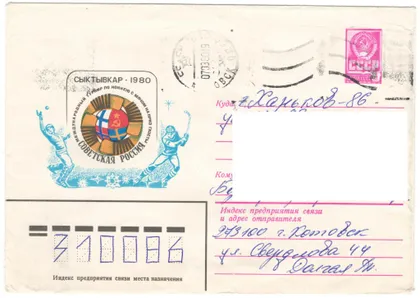 СЫКТЫВКАР-1980
МЕЖДУНАРОДНЫЙ ТУРНИР ПО ХОККЕЮ С МЯЧОМ НА ПРИЗ ГАЗЕТЫ
СОВЕТСКАЯ РОССИЯ
СССР
Куда
г. Харьков-86
у
Кому
Индекс предприятия связи
и адрес отправителя
273100 г. Котовск
ул. Свердлова 44
310086
Индекс предприятия связи места назначения